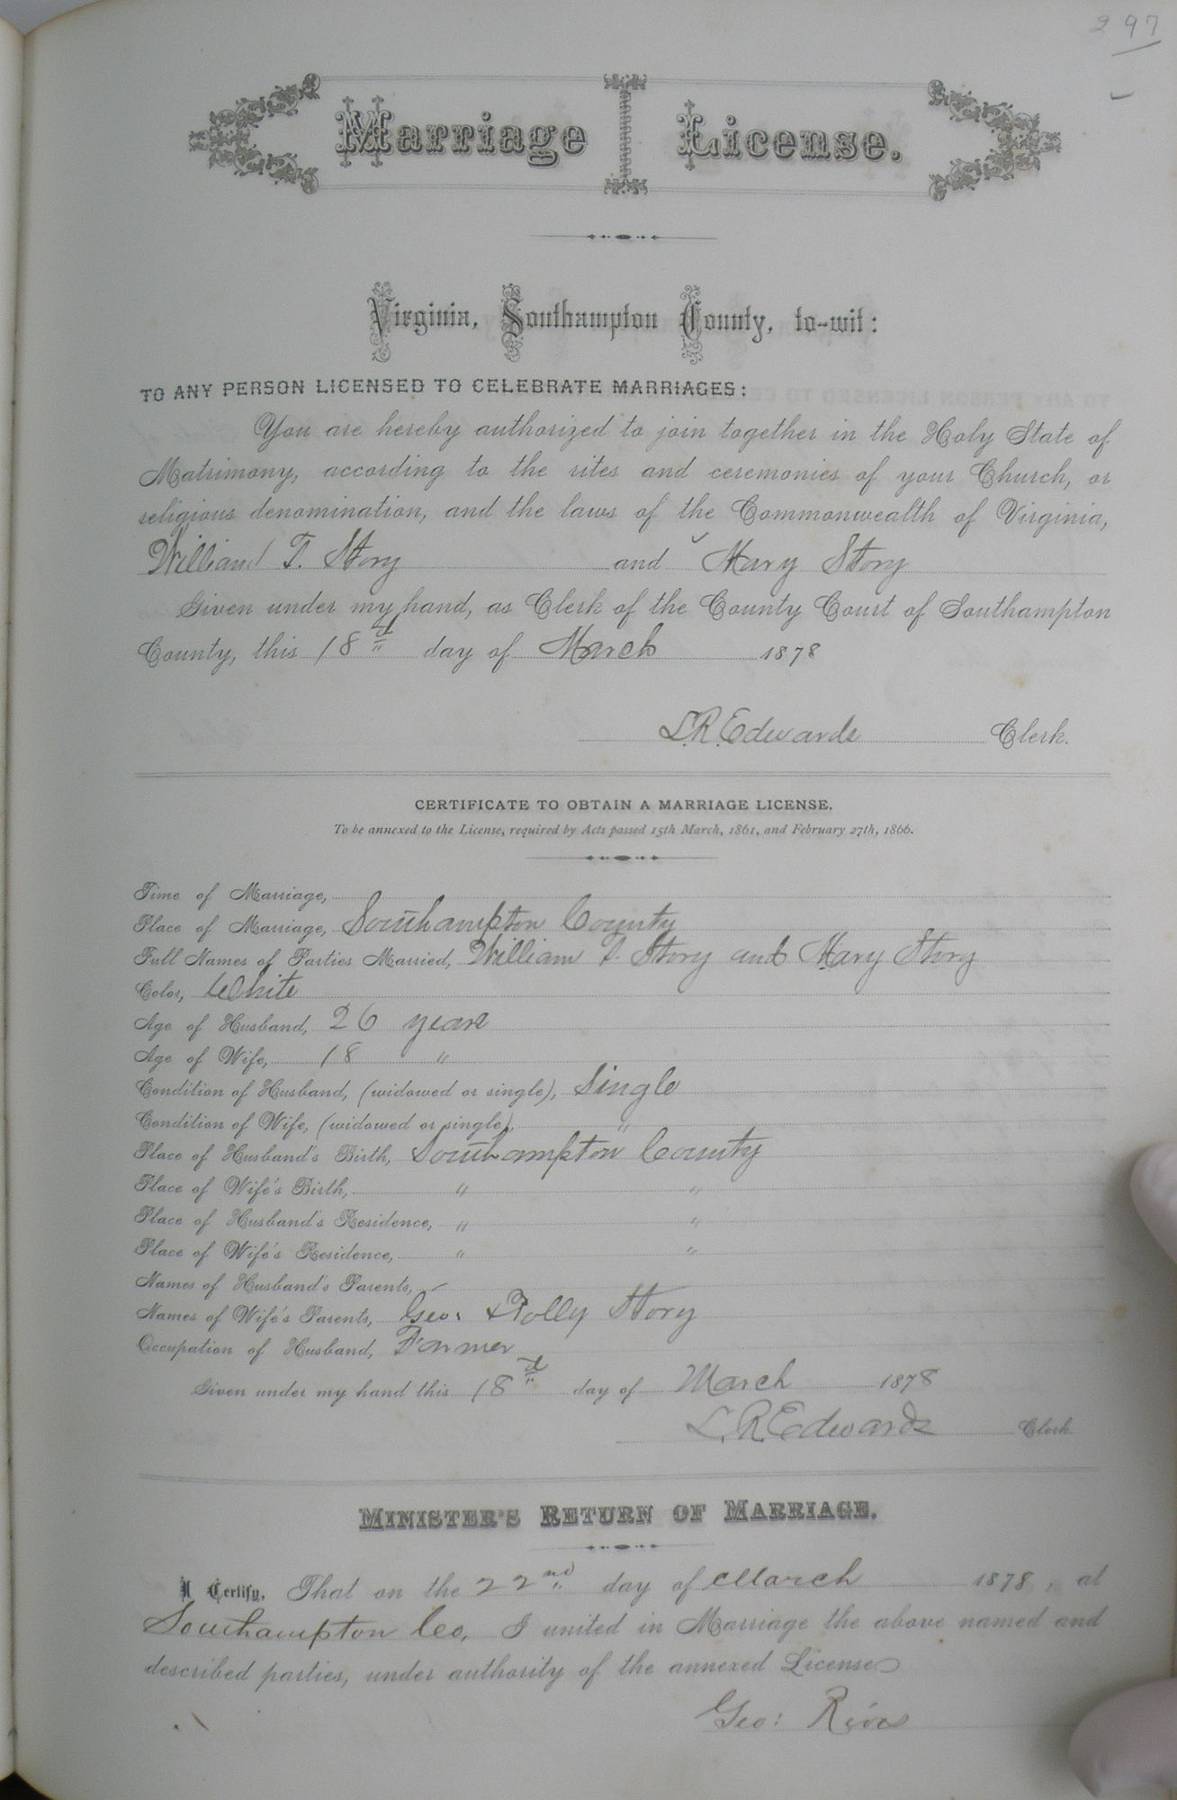 297
Marriage License.
Virginia, Southampton County, to-wit:
TO ANY PERSON LICENSED TO CELEBRATE MARRIAGES:
You are hereby authorized to join together in the Holy State of
Matrimony, according to the rites and ceremonies of your Church, or
religious denomination, and the laws of the Commonwealth of Virginia,
William T. Story and Mary Story
Given under my hand, as Clerk of the County Court of Southampton
County, this 18th day of March 1878
L.R. Edwards Clerk.
CERTIFICATE TO OBTAIN A MARRIAGE LICENSE.
To be annexed to the License, required by Acts passed 15th March, 1861, and February 27th, 1866.
Time of Marriage,
Place of Marriage, Southampton County
Full Names of Parties Married, William T. Story and Mary Story
Color, White
Age of Husband, 26 years
Age of Wife, 18 "
Condition of Husband, (widowed or single), Single
Condition of Wife, (widowed or single), "
Place of Husband's Birth, Southampton County
Place of Wife's Birth, " "
Place of Husband's Residence, " "
Place of Wife's Residence, " "
Names of Husband's Parents,
Names of Wife's Parents, Geo: & Polly Story
Occupation of Husband, Farmer
Given under my hand this 18th day of March 1878
L. R. Edwards Clerk
MINISTER'S RETURN OF MARRIAGE.
I Certify, That on the 22nd day of March 1878, at
Southampton Co, I united in Marriage the above named and
described parties, under authority of the annexed License
Geo: